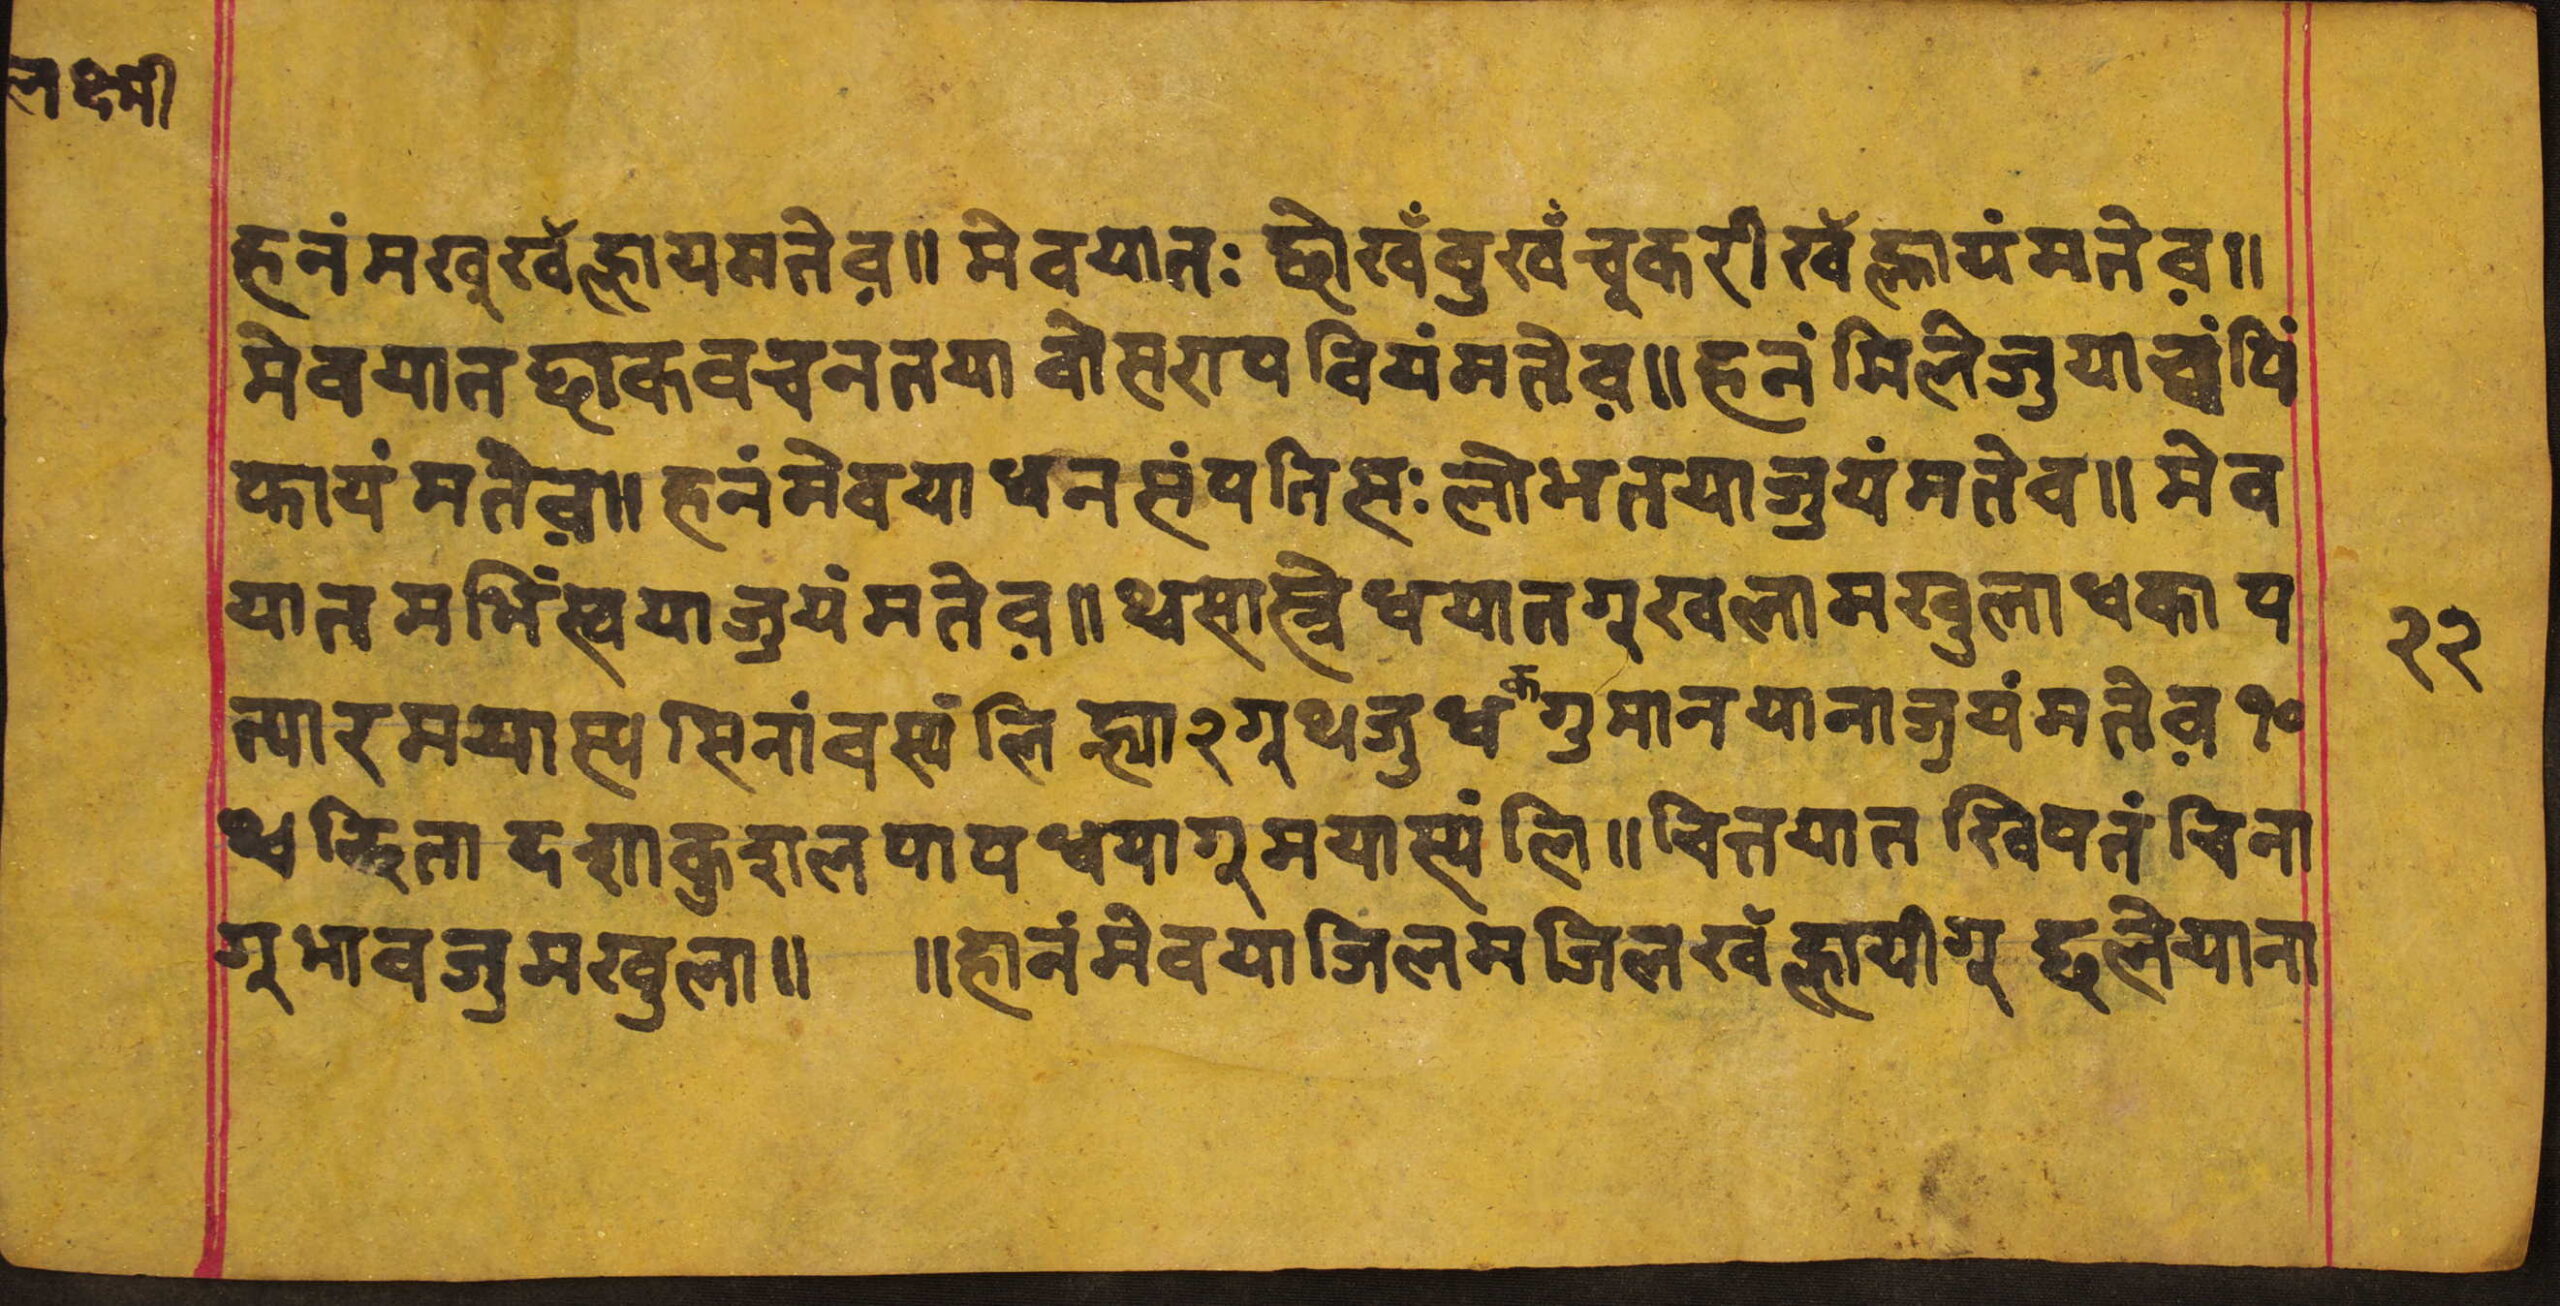 लक्ष्मी
हनं मखु खँ ह्लायमतेव़॥ मेवयातः छोखँ वुखँ चूकरी खँ ह्लायं मतेव़॥
मेवयात छाकवचनतया वोसराप वियं मतेव़॥ हनं मिले जुया च्वंपिं
फायं मतेव़॥ हनं मेवया धन संपतिसः लोभतया जुयं मतेव॥ मेव
यात मभिंस्वया जुयं मतेव़॥ थ्व सास्त्रे धयातगू खला मखुला धका प
त्यार मयास्य सिनांवस्यं लि ह्या२गू थजु धकगुमानयाना जुयं मतेव़ १०
थ्व झिता दशाकुशल पाप धयागू मयास्यं लि॥ चित्तयात खिपतं चिना
गू भाव जु मखुला॥ ॥हानं मेवया जिल मजिल खँ ह्लायीगू छलैयाना
२२